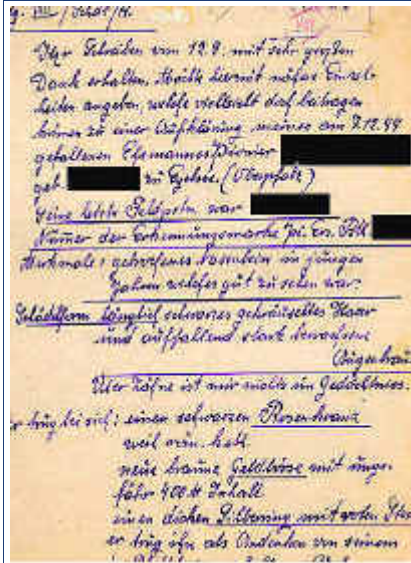 g. VIII / Schar /H.
Ihr Schreiben vom 12.9. mit sehr großen
Dank erhalten. Möchte hiermit nähere Einzel-
heiten angeben, welche vielleicht dazu beitragen
können zu einer Aufklärung meines am 7.12.44
gefallenen Ehemannes Pionier
geb. zu (Oberpfalz)
Seine letzte Feldpostn. war
Nummer der Erkennungsmarke Pi. Ers. Batl.
Merkmale: gebrochenes Nasenbein in jungen
Jahren welches gut zu sehen war.
Schädelform länglich schwarzes gekräuseltes Haar
und auffallend stark bewachsene
Augenbrau
Über Zähne ist mir nichts im Gedächtniss.
r trug bei sich: einen schwarzen Rosenkranz
weil kath.
neue braune Geldbörse mit unge-
fähr 400 M Inhalt
einen dicken Silberring mit roten Stei
er trug ihn als Andenken von seinem